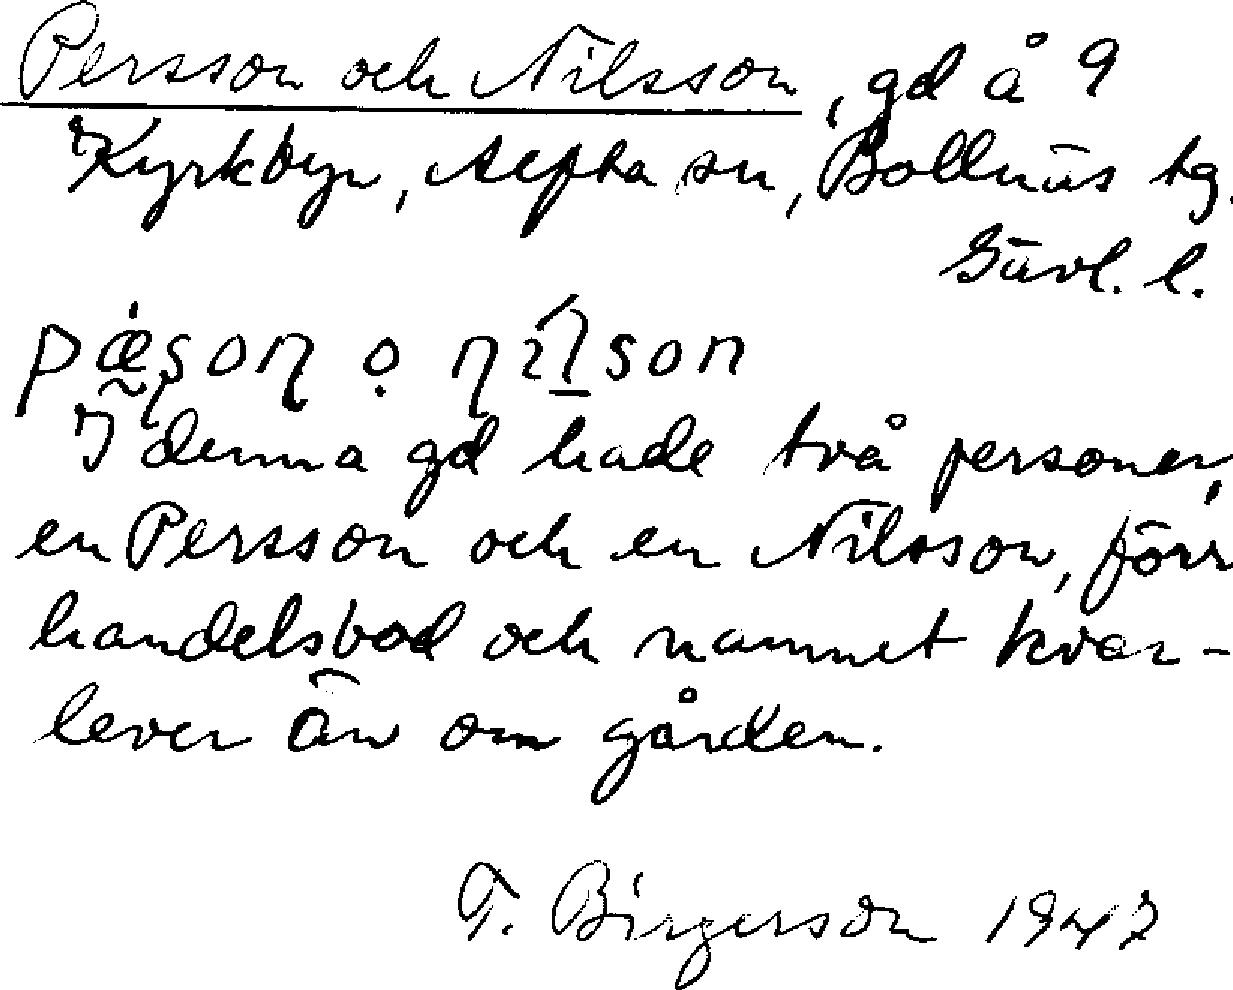 Persson och Nilsson, gd å 9
Kyrkbyn, Alfta sn, Bollnäs tg.
Gävl. l.
I denna gd hade två personer,
en Persson och en Nilsson, förr
handelsbod och namnet kvar-
lever än om gården.
T. Birgerson 1947